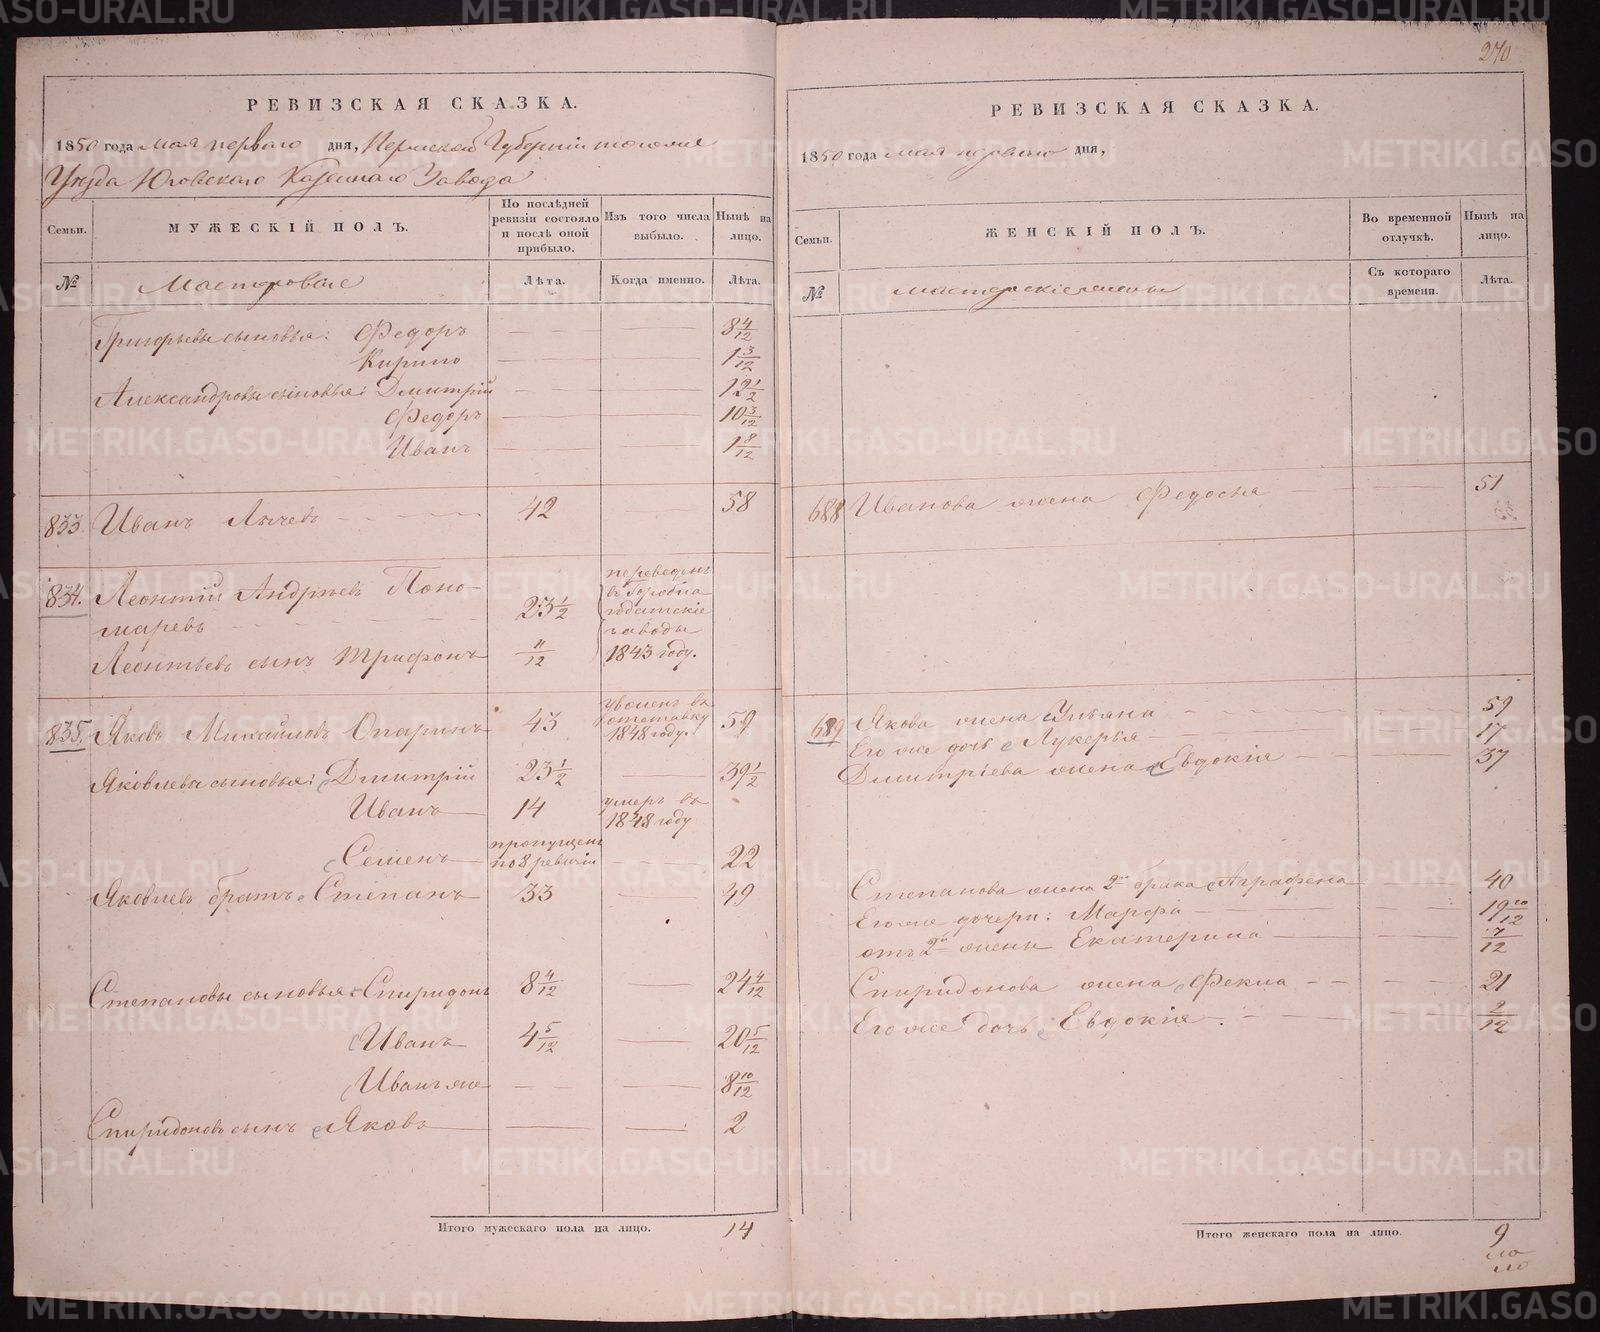 270
РЕВИЗСКАЯ СКАЗКА.
1850 года мая первого дня, Пермской Губерніи тогоже
Уѣзда Юговскаго Казеннаго Завода
Семьи. МУЖЕСКІЙ ПОЛЪ. По послѣдней ревизіи состояло и послѣ оной прибыло. Изъ того числа выбыло. Нынѣ на лицо.
№ Мастеровые Лѣта. Когда именно. Лѣта.
Григорьевы сыновья: Федоръ 8 4/12
Кирило 1 3/12
Александровы сыновья: Дмитрій 12 1/2
Федоръ 10 3/12
Иванъ 1 8/12
833. Иванъ 42 58
834. Леонтій Андреевъ Поно-
маревъ 23 1/2 переведенъ въ Горобла
годатскіе заводы
Леонтьевъ сынъ Трифонъ 11/12 1843 году.
835. Яковъ Михайловъ Опаринъ 43 уволенъ въ отставку 1848 году. 59
Яковлевы сыновья: Дмитрій 23 1/2 39 1/2
Иванъ 14 умеръ въ 1848 году
Семенъ пропущенъ по 8 ревизіи 22
Яковлевъ братъ Степанъ 33 49
Степановы сыновья: Спиридонъ 8 4/12 24 4/12
Иванъ 4 5/12 20 5/12
Иванъ же 8 10/12
Спиридоновъ сынъ Яковъ 2
Итого мужескаго пола на лицо. 14
РЕВИЗСКАЯ СКАЗКА.
1850 года мая первого дня,
Семьи. ЖЕНСКІЙ ПОЛЪ. Во временной отлучкѣ. Нынѣ на лицо.
№ мастерскіе жены Съ котораго времени. Лѣта.
688 Иванова жена Федосья 51
689 Якова жена Ульяна 59
Его же дочь Лукерья 17
Дмитріева жена Евдокія 37
Степанова жена 2го брака Аграфена 40
Его же дочери: Марфа 19 10/12
отъ 2й жены Екатерина 7/12
Спиридонова жена Фекла 21
Его же дочь Евдокія 2/12
Итого женскаго пола на лицо. 9
METRIKI.GASO-URAL.RU